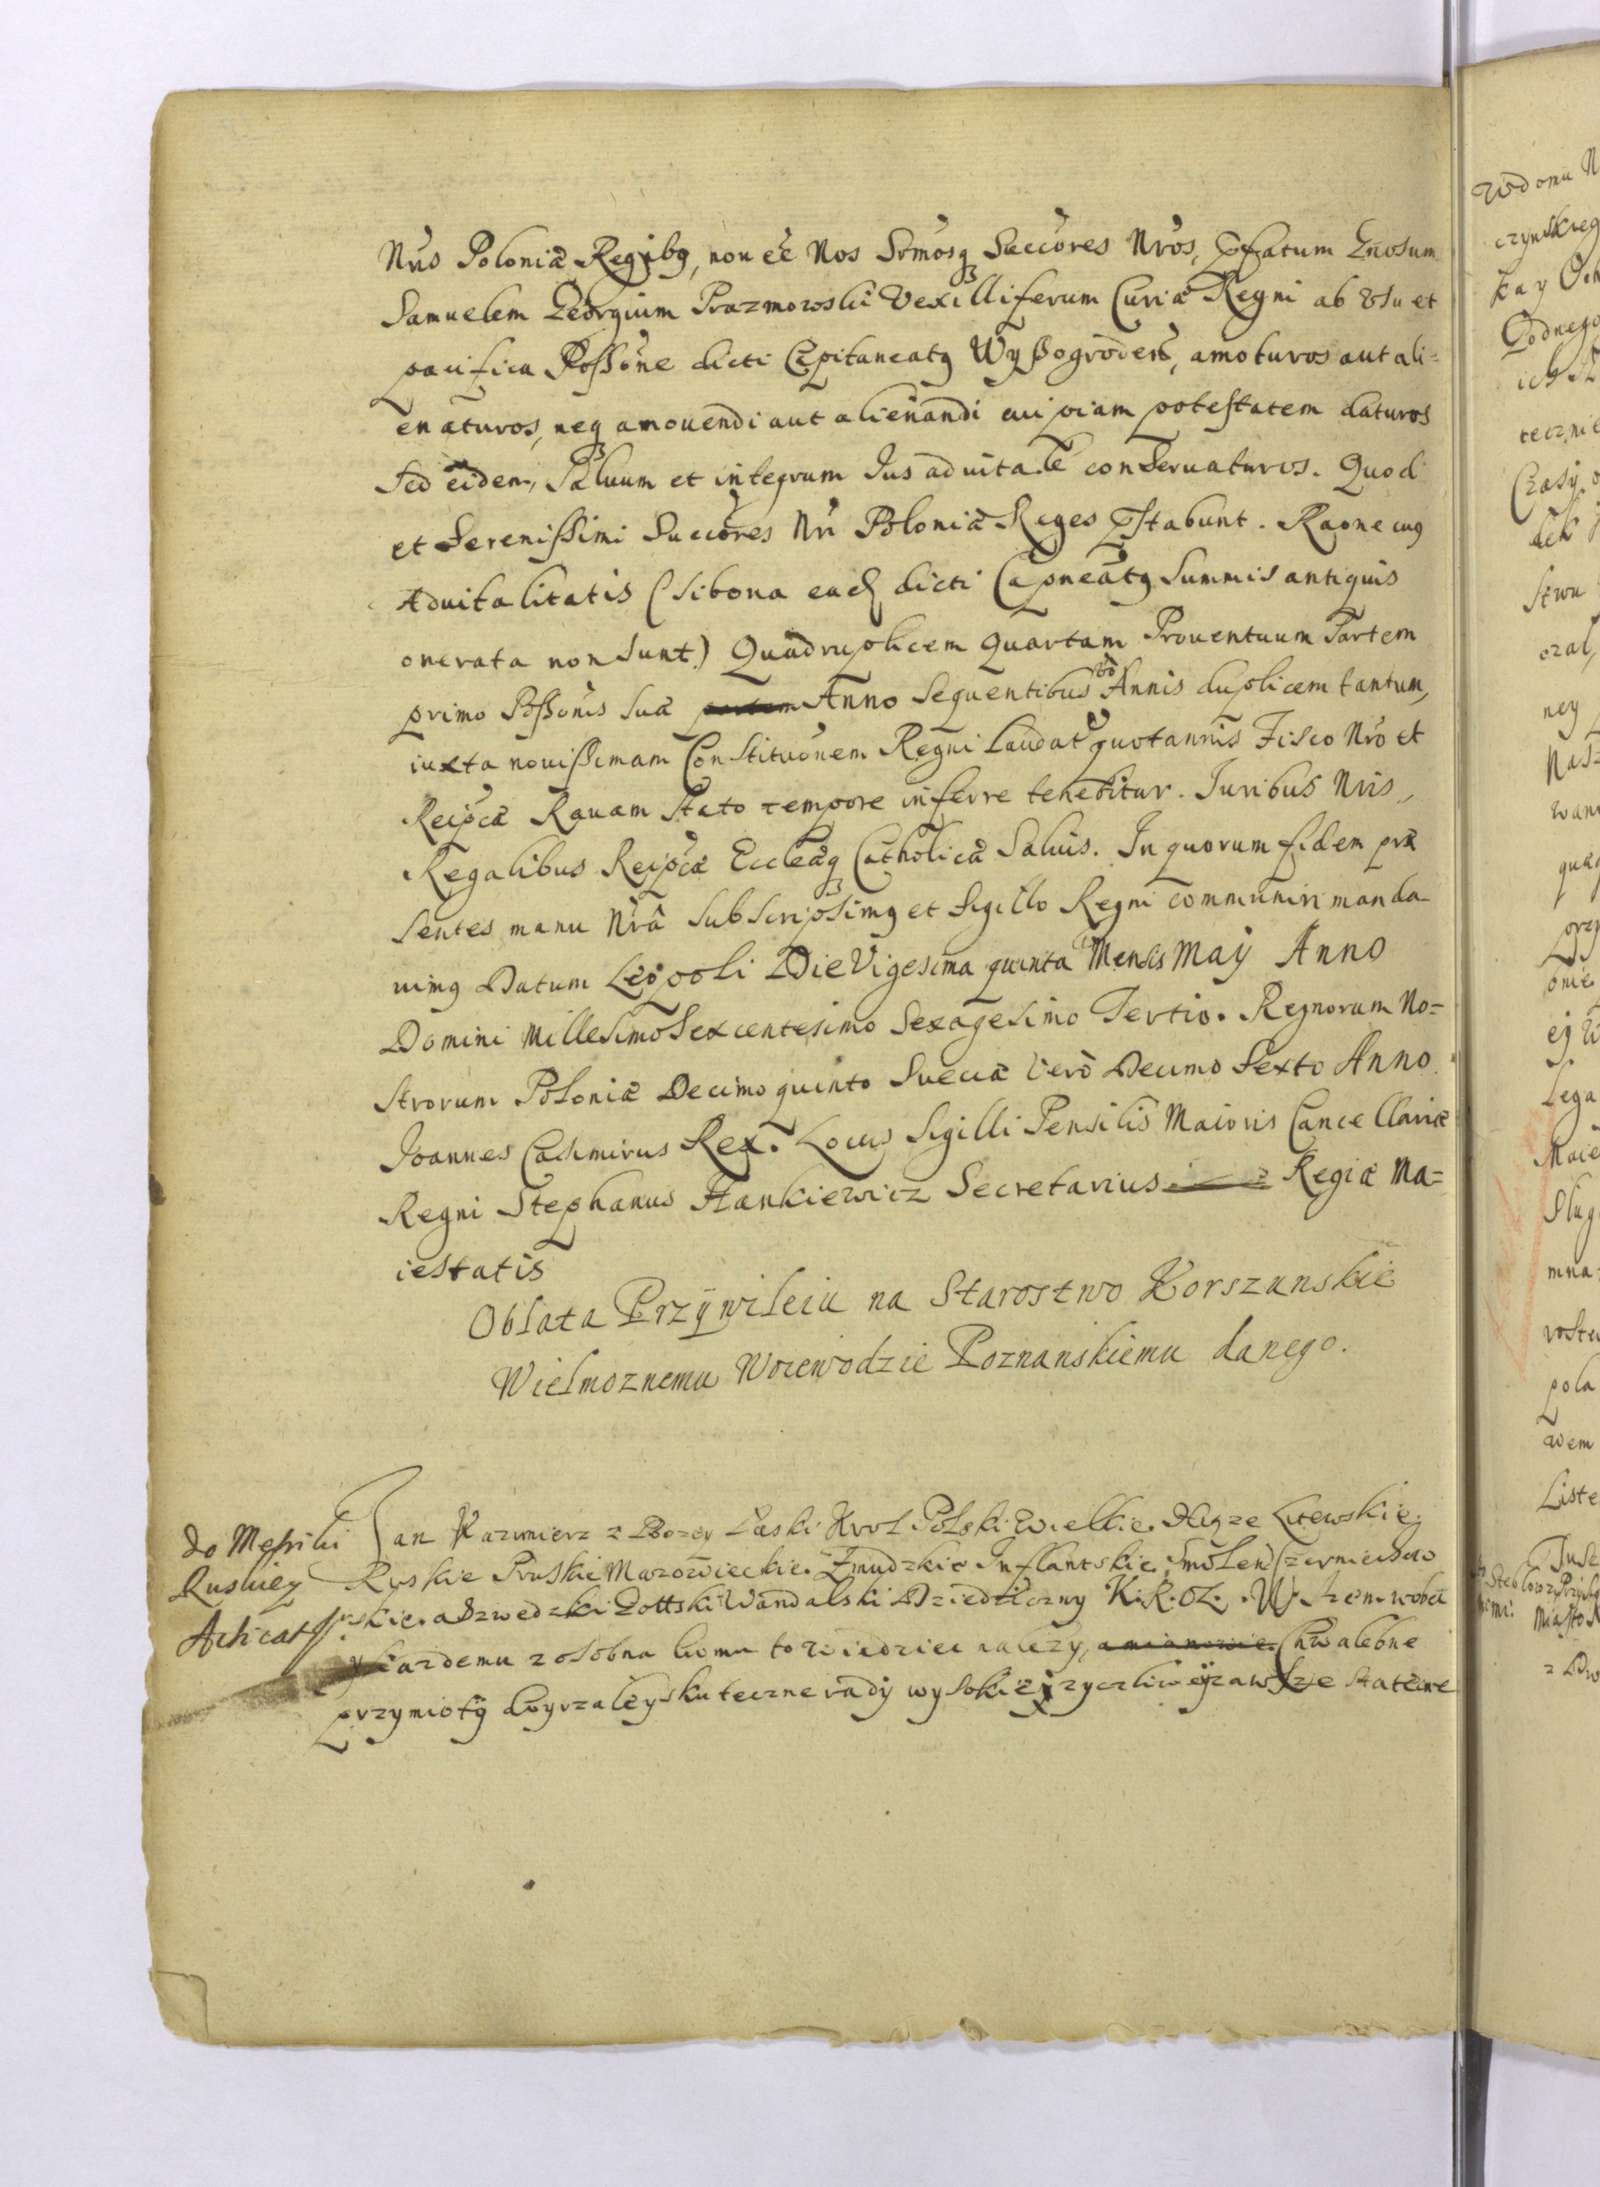 Nris Poloniæ Regibq, non ee Nos Srmosq Succores Nros, pfatum Gnosum
Samuelem Georgium Prazmowski Vexilliferum Curiæ Regni ab vsu et
pacifica Possone dicti Capitaneatq Wyszogroden, amoturos aut ali=
enaturos, neq amouendi aut alienandi cuipiam potestatem daturos
sed eidem, Saluum et integrum Jus aduitale conseruaturos. Quod
et Serenissimi Succores Nri Poloniæ Reges pstabunt. Raone cuq
Aduitalitatis (si bona ead dicti Capneatq Summis antiquis
onerata non sunt.) Quadruplicem Quartam Prouentuum Partem
primo Possonis suæ Anno Sequentibus vo Annis duplicem tantum,
iuxta nouissimam Constituonem Regni Laudat quotannis Fisco Nro et
Reipcæ Rauam stato tempore inferre tenebitur. Juribus Nris,
Regalibus Reipcæ Eccleæq Catholicæ Saluis. In quorum fidem præ
sentes manu Nra subscripsimq et Sigillo Regni communiri manda-
uimq Datum Leopoli Die Vigesima quinta Mensis May Anno
Domini Millesimo Sexcentesimo Sexagesimo Tertio. Regnorum No=
strorum Poloniæ Decimo quinto Sueciæ Vero Decimo Sexto Anno.
Joannes Casimirus Rex. Locus Sigilli Pensilis Maioris Cancellariæ
Regni Stephanus Hankiewicz Secretarius Regiæ Ma=
iestatis
Oblata Przywileiu na Starostwo Korszunskie
Wielmoznemu Woiewodzie Poznanskiemu danego.
do Metriki
Ruskiey
Jan Kazimierz z Bozey Laski Krol Polski Wielkie Xiąze Litewskie
Ruskie Pruskie Mazowieckie Zmudzkie Inflantskie, Smolen Czerniechow
skie. a Szwedzki Gottski Wandalski Dziedziczny Krol. Wszem wobec
y kazdemu z osobna komu to wiedziec nalezy, Chwalebne
przymioty doyrzałey skuteczne rady wysokiey zyczliwey zawsze stateczne